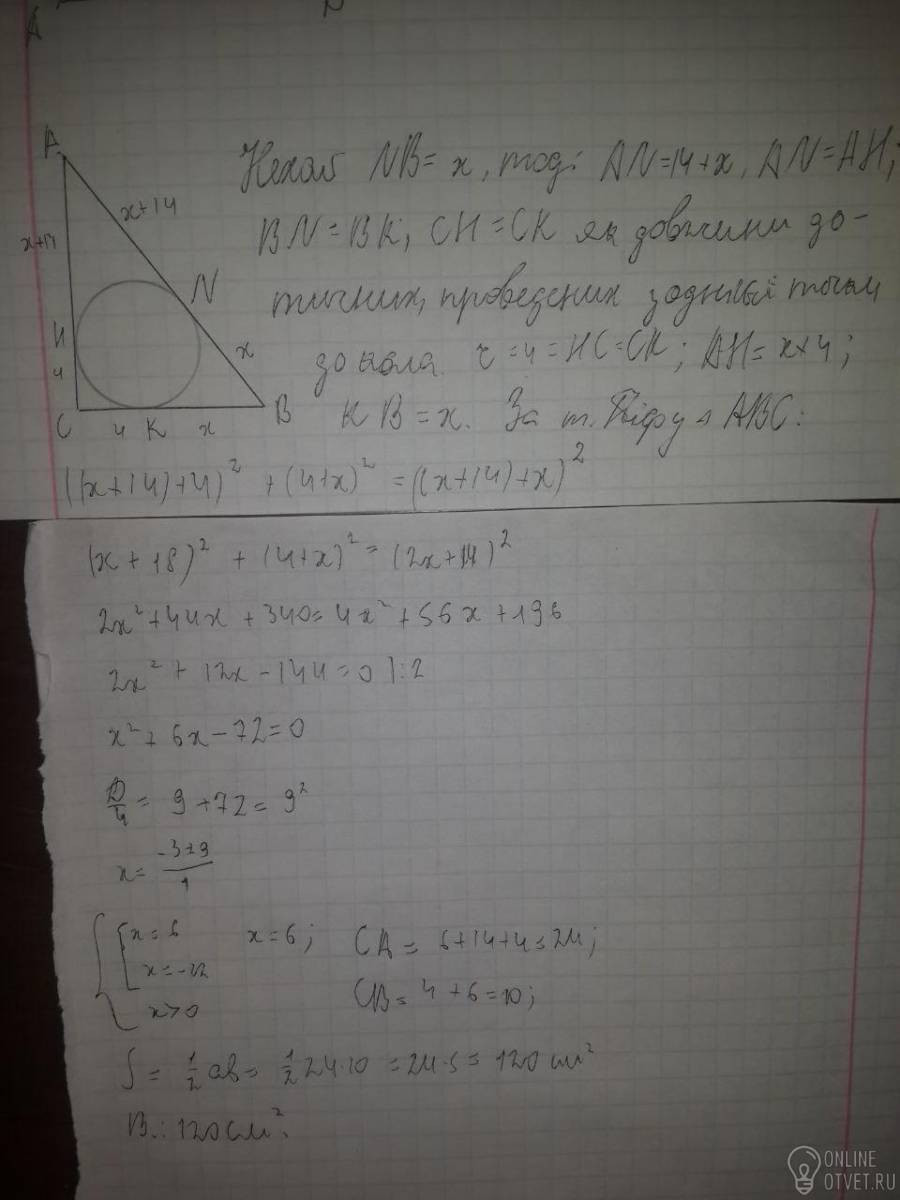 A
A
x+14
x+14
N
H
4
x
C 4 K x B
Нехай NB = x, тоді AN=14+x, AN=AH;
BN=BK, CH=CK як довжини до-
тичних, проведених з однієї точки
до кола. r=4=HC=CK; AH=x+4;
KB=x. За т. Піфу Δ ABC:
((x+14)+4)² + (4+x)² = ((x+14)+x)²
(x+18)² + (4+x)² = (2x+14)²
2x²+44x+340=4x²+56x+196
2x²+12x-144=0 |:2
x²+6x-72=0
D/4 = 9+72=9²
x= (-3±9)/1
x=6 x=6; CA= 6+14+4=24;
x=-12
x>0 CB=4+6=10;
S = 1/2 ab= 1/2 24·10 =24·5=120 см²
В.: 120 см².
ONLINE
OTVET.RU